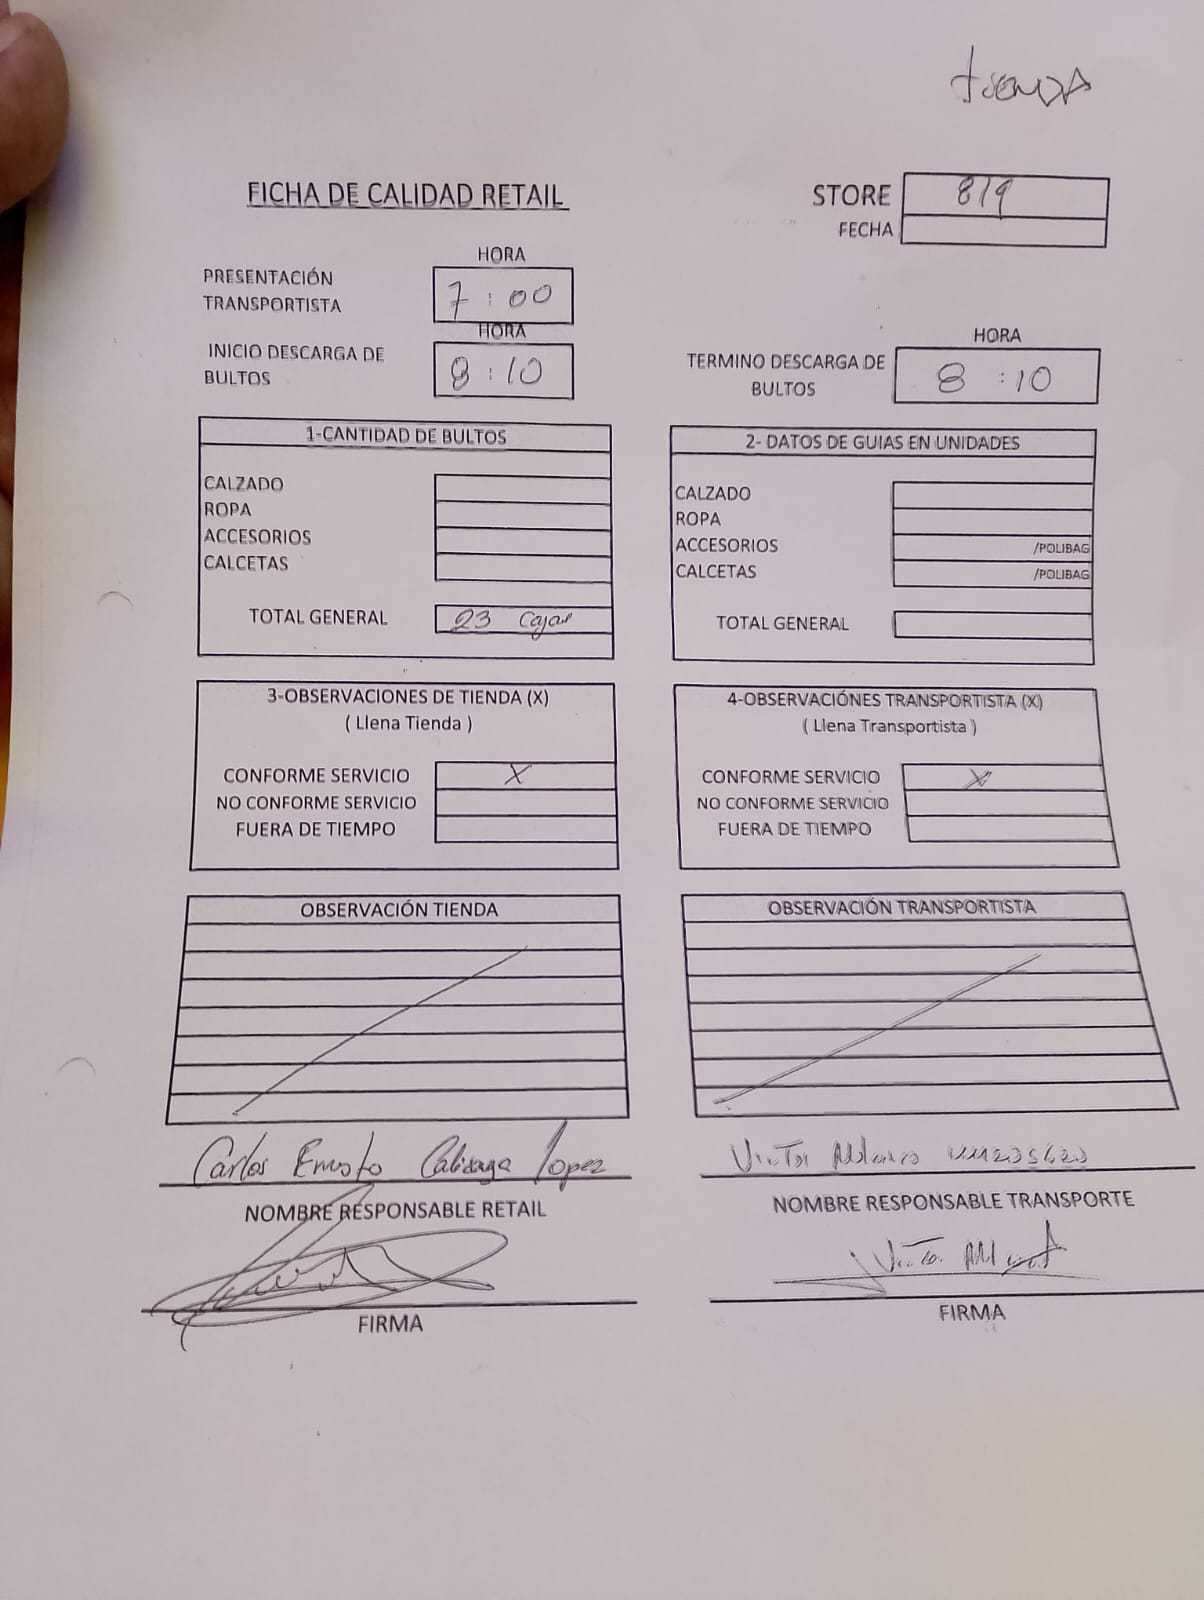 tienDA
FICHA DE CALIDAD RETAIL
STORE 819
FECHA
HORA
PRESENTACIÓN TRANSPORTISTA 7:00
HORA
INICIO DESCARGA DE BULTOS 8:10
HORA
TERMINO DESCARGA DE BULTOS 8:10
1-CANTIDAD DE BULTOS
CALZADO
ROPA
ACCESORIOS
CALCETAS
TOTAL GENERAL 23 Cajas
2- DATOS DE GUIAS EN UNIDADES
CALZADO
ROPA
ACCESORIOS /POLIBAG
CALCETAS /POLIBAG
TOTAL GENERAL
3-OBSERVACIONES DE TIENDA (X)
( Llena Tienda )
CONFORME SERVICIO X
NO CONFORME SERVICIO
FUERA DE TIEMPO
4-OBSERVACIÓNES TRANSPORTISTA (X)
( Llena Transportista )
CONFORME SERVICIO X
NO CONFORME SERVICIO
FUERA DE TIEMPO
OBSERVACIÓN TIENDA
OBSERVACIÓN TRANSPORTISTA
Carlos Ernesto Calisaya Lopez
NOMBRE RESPONSABLE RETAIL
FIRMA
Victor
NOMBRE RESPONSABLE TRANSPORTE
Victor
FIRMA